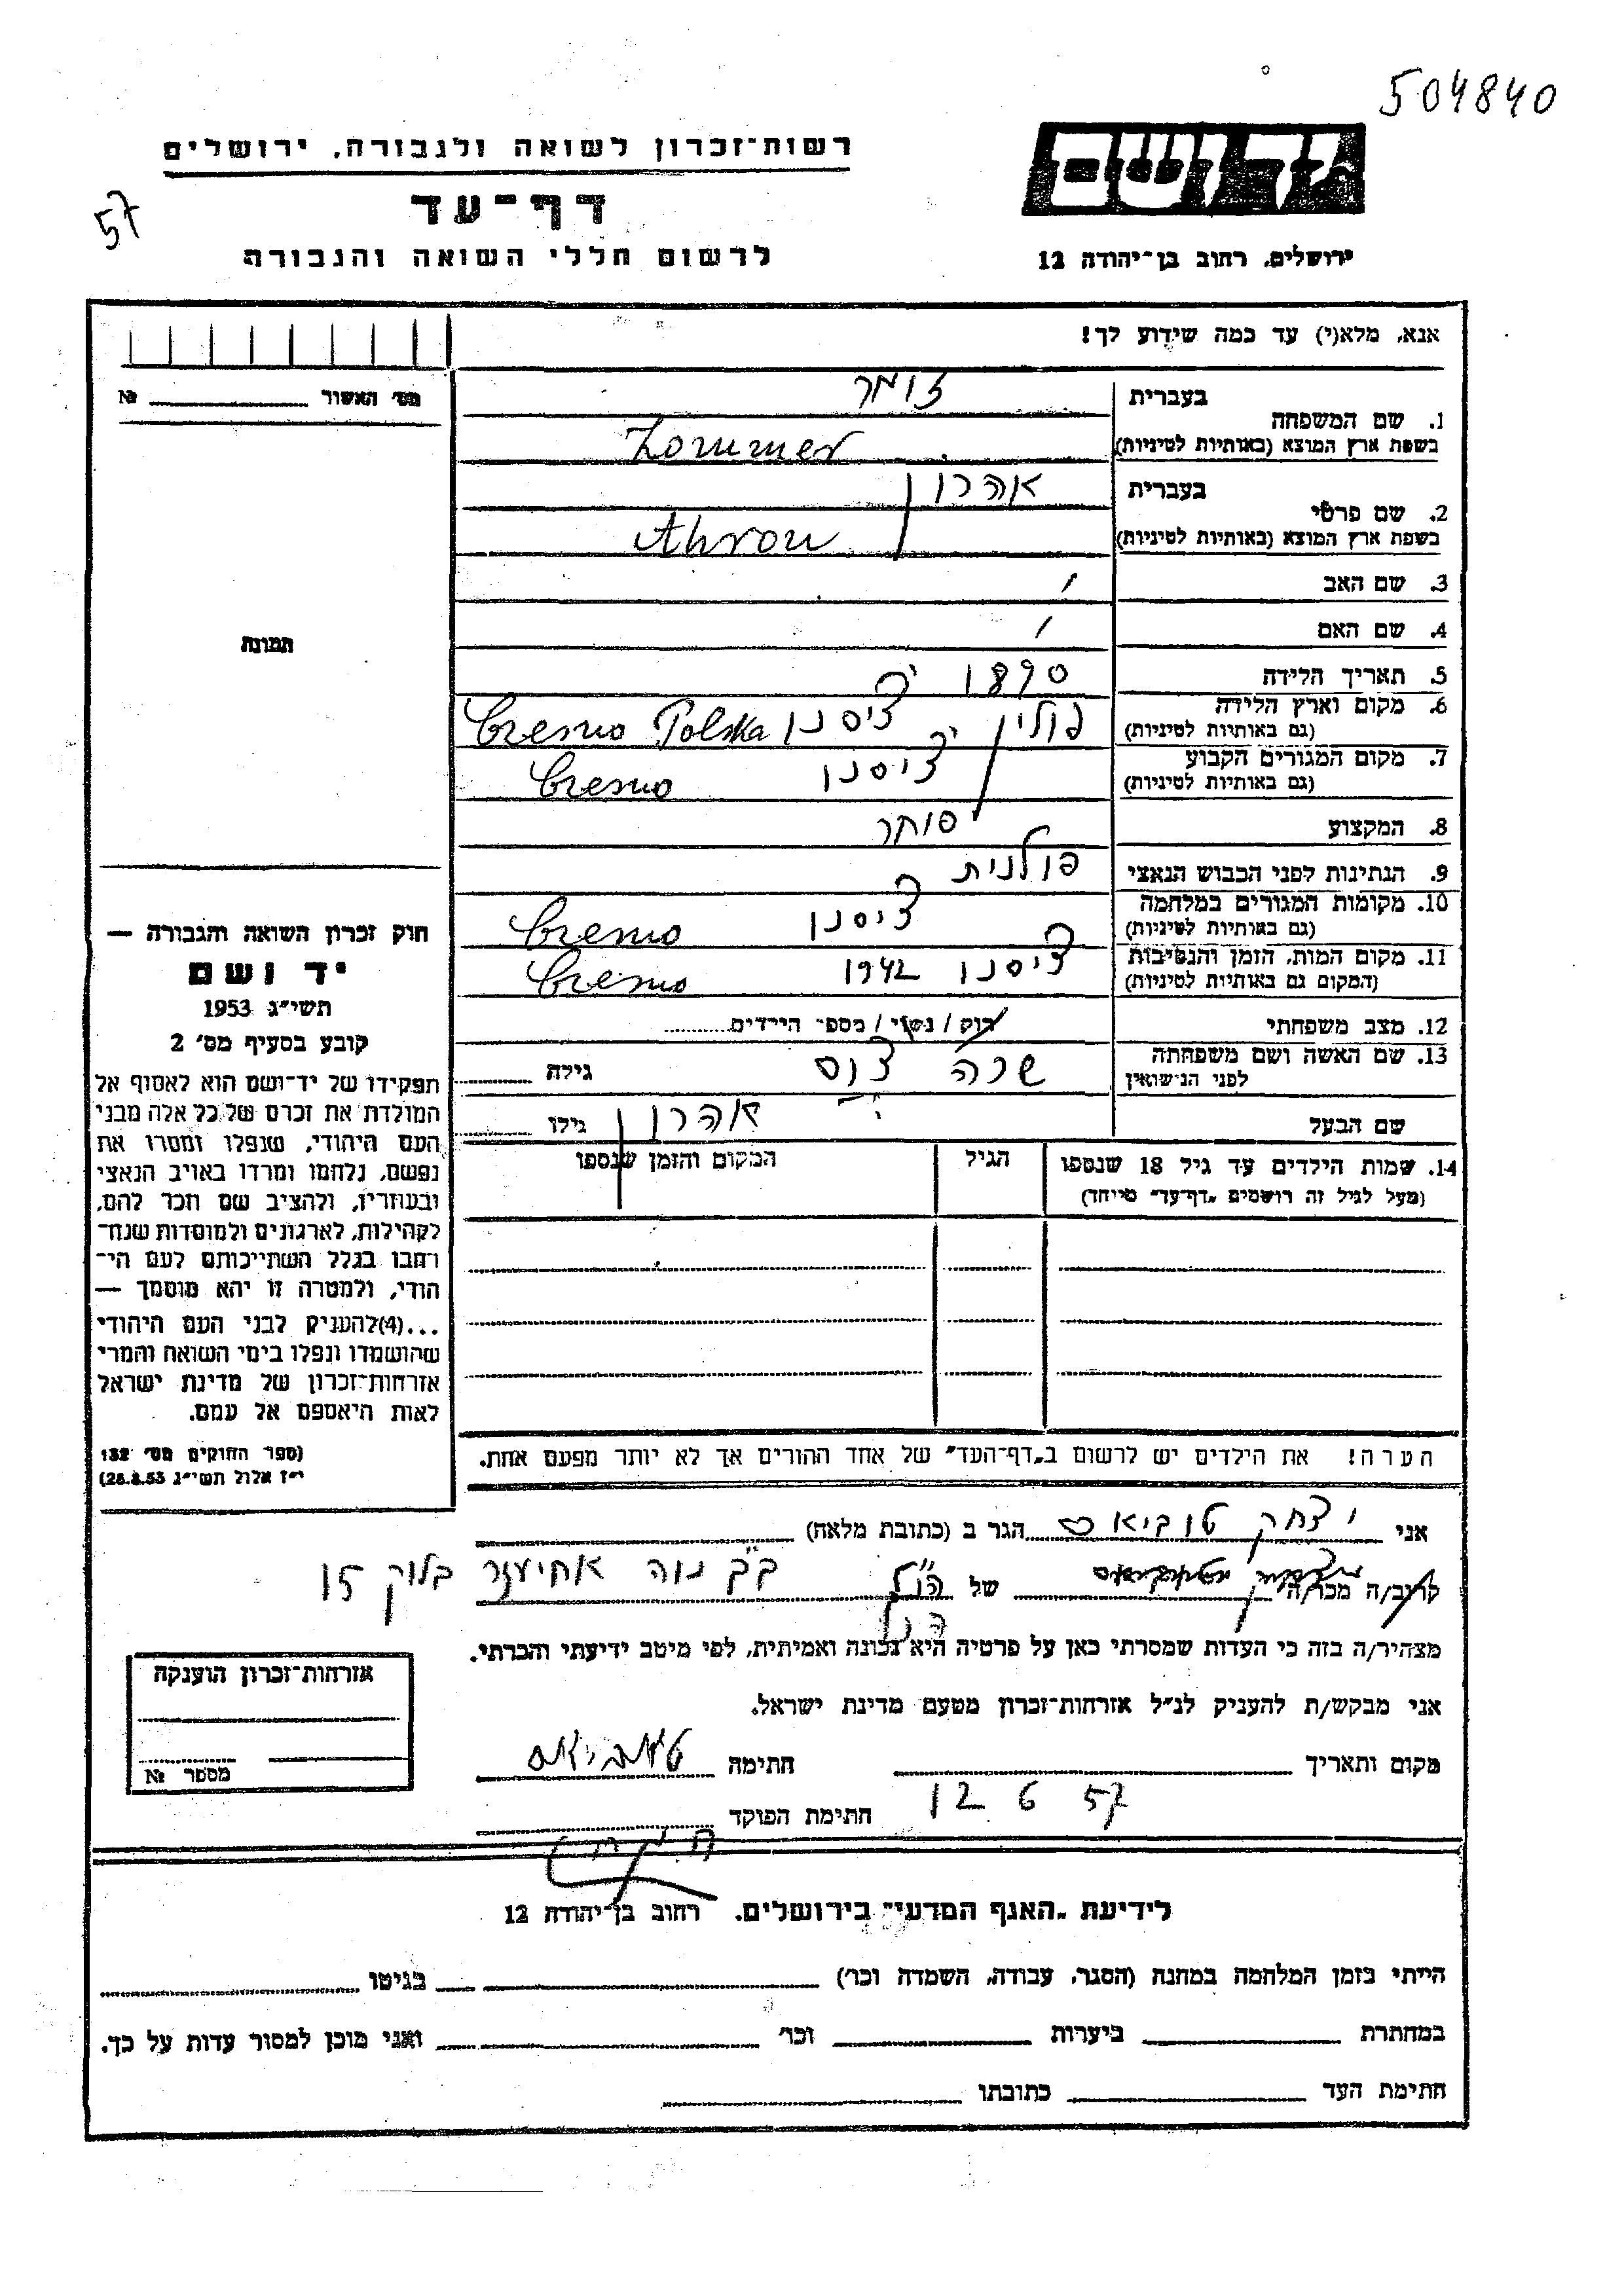 504840
רשות־זכרון לשואה ולגבורה, ירושלים
יד ושם
57
דף־עד
לרשום חללי השואה והגבורה
ירושלים, רחוב בן־יהודה 12
אנא, מלא(י) עד כמה שידוע לך!
מס׳ האשור №
בעברית זומר
1. שם המשפחה
בשפת ארץ המוצא (באותיות לטיניות) Zommer
בעברית אהרון
2. שם פרטי
בשפת ארץ המוצא (באותיות לטיניות) Ahron
3. שם האב /
4. שם האם /
תמונה
5. תאריך הלידה 1890
6. מקום וארץ הלידה
(גם באותיות לטיניות) פולין Polska
7. מקום המגורים הקבוע
(גם באותיות לטיניות)
8. המקצוע סוחר
9. הנתינות לפני הכבוש הנאצי פולנית
10. מקומות המגורים במלחמה
(גם באותיות לטיניות)
11. מקום המות, הזמן והנסיבות
(המקום גם באותיות לטיניות) 1942
12. מצב משפחתי רוק / נשוי / מספר הילדים
13. שם האשה ושם משפחתה
לפני הנישואין שרה גילה
שם הבעל אהרון גילו
14. שמות הילדים עד גיל 18 שנספו הגיל המקום והזמן שנספו
(מעל לגיל זה רושמים „דף־עד״ מיוחד)
הערה! את הילדים יש לרשום ב„דף־העד״ של אחד ההורים אך לא יותר מפעם אחת.
חוק זכרון השואה והגבורה —
יד ושם
תשי״ג 1953
קובע בסעיף מס׳ 2
תפקידו של יד־ושם הוא לאסוף אל
המולדת את זכרם של כל אלה מבני
העם היהודי, שנפלו ומסרו את
נפשם, נלחמו ומרדו באויב הנאצי
ובעוזריו, ולהציב שם וזכר להם,
לקהילות, לארגונים ולמוסדות שנח־
רבו בגלל השתייכותם לעם הי־
הודי, ולמטרה זו יהא מוסמך —
...(4)להעניק לבני העם היהודי
שהושמדו ונפלו בימי השואה והמרי
אזרחות־זכרון של מדינת ישראל
לאות היאספם אל עמם.
(ספר החוקים מס׳ 132
י״ז אלול תשי״ג 28.8.53)
אני יצחק טוביאס הגר ב (כתובת מלאה)
קרוב/ה מכר/ה של הנ״ל ב״ב נוה אחיעזר בלוק 15
הנ״ל
מצהיר/ה בזה כי העדות שמסרתי כאן על פרטיה היא נכונה ואמיתית, לפי מיטב ידיעתי והכרתי.
אני מבקש/ת להעניק לנ״ל אזרחות־זכרון מטעם מדינת ישראל.
מקום ותאריך חתימה טוביאס
12 6 57 חתימת הפוקד
אזרחות־זכרון הוענקה
מספר №
לידיעת „האגף המדעי״ בירושלים. רחוב בן־יהודה 12
הייתי בזמן המלחמה במחנה (הסגר, עבודה, השמדה וכו׳) בגיטו
במחתרת ביערות וכו׳ ואני מוכן למסור עדות על כך.
חתימת העד כתובתו